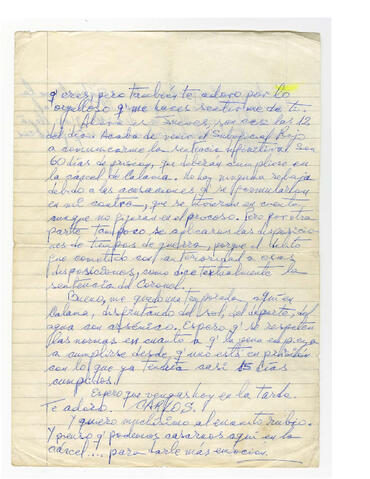 q' eres, pero también te adoro por lo
orgulloso q' me haces sentirme de ti.
Ahora es Jueves, son casi las 12
del día. Acaba de venir el Suboficial Rojo
a comunicarme la sentencia definitiva. Son
60 días de prisión, que deberán cumplirse en la
cárcel de Calama. No hay ninguna rebaja
debido a las acusaciones q' se formularon
en mi contra, que se tuvieron en cuenta,
aunque no figuran en el proceso. Pero por otra
parte tampoco se aplicaron las disposicio-
nes de tiempos de guerra, porque el delito
fue cometido con anterioridad a esas
disposiciones, como dice textualmente la
sentencia del Coronel.
Bueno, me queda una temporada aquí en
Calama, disfrutando del sol, del deporte, del
agua con arsénico. Espero q' se respeten
las normas en cuanto a q' la pena empieza
a cumplirse desde q' uno está en prisión
con lo que ya tendría casi 15 días
cumplidos!
Espero que vengas hoy en la tarde.
Te adoro. CARLOS.
Y quiero muchísimo al
Y pienso q' podemos casarnos aquí en la
cárcel... para darle más emoción.